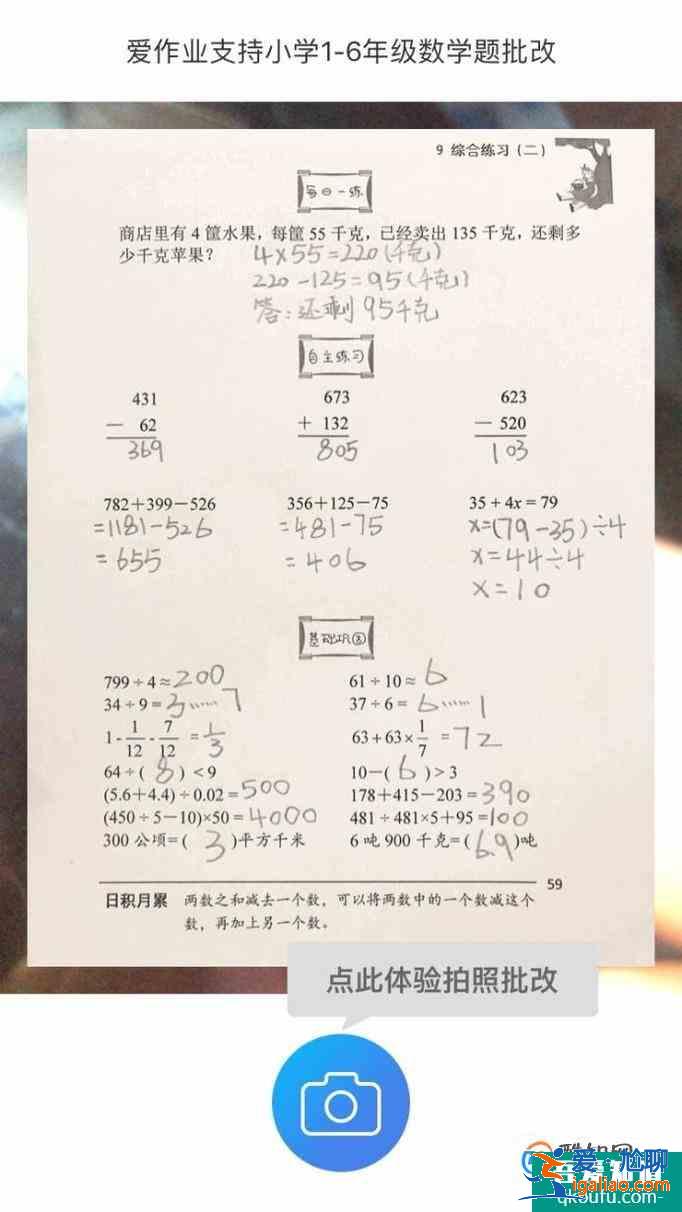 爱作业支持小学1-6年级数学题批改
9 综合练习（二）
每日一练
商店里有 4 筐水果，每筐 55 千克，已经卖出 135 千克，还剩多
少千克苹果？ 4×55=220(千克)
220-125=95(千克)
答：还剩95千克
自主练习
431 673 623
- 62 + 132 - 520
369 805 103
782+399-526 356+125-75 35+4x=79
=1181-526 =481-75 x=(79-35)÷4
=655 =406 x=44÷4
x=10
基础巩固
799÷4≈200 61÷10≈6
34÷9=3……7 37÷6=6……1
1-1/12-7/12=1/3 63+63×1/7=72
64÷(8)<9 10-(6)>3
(5.6+4.4)÷0.02=500 178+415-203=390
(450÷5-10)×50=4000 481÷481×5+95=100
300 公顷=(3)平方千米 6 吨 900 千克=(6.9)吨
59
日积月累 两数之和减去一个数，可以将两数中的一个数减这个
数，再加上另一个数。
点此体验拍照批改
爱尬聊
igaliao.com